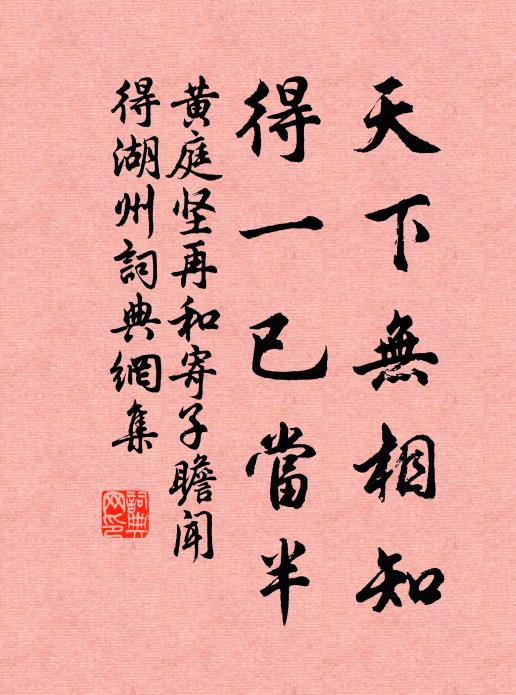 天下無相知
得一已當半
黄庭坚再和寄子瞻闻
得湖州詞典網集
詞典
网印